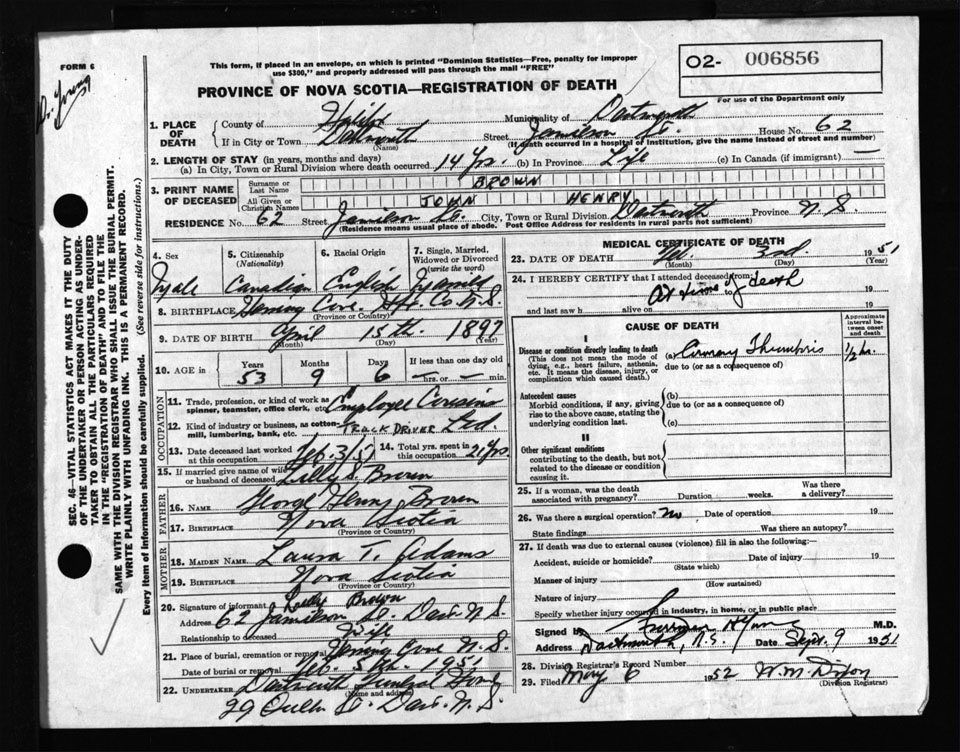 FORM 6
This form, if placed in an envelope, on which is printed "Dominion Statistics—Free, penalty for improper
use $300," and properly addressed will pass through the mail "FREE"
O2- 006856
For use of the Department only
PROVINCE OF NOVA SCOTIA—REGISTRATION OF DEATH
Dr. Young
1. PLACE OF DEATH
County of Halifax Municipality of Dartmouth
If in City or Town Dartmouth Street Jamieson St. House No. 62
(Name) (If death occurred in a hospital of institution, give the name instead of street and number)
2. LENGTH OF STAY (in years, months and days)
(a) In City, Town or Rural Division where death occurred 14 Yrs. (b) In Province Life (c) In Canada (if immigrant) —
3. PRINT NAME OF DECEASED
Surname or Last Name BROWN
All Given or Christian Names JOHN HENRY
RESIDENCE No. 62 Street Jamilson St. City, Town or Rural Division Dartmouth Province N.S.
(Residence means usual place of abode. Post Office Address for residents in rural parts not sufficient)
4. Sex Male
5. Citizenship (Nationality) Canadian
6. Racial Origin English
7. Single, Married, Widowed or Divorced (write the word) Married
8. BIRTHPLACE Herring Cove Hfx. Co. N.S.
(Province or Country)
9. DATE OF BIRTH April 15th. 1897
(Month) (Day) (Year)
10. AGE in Years 53 Months 9 Days 6 If less than one day old — hrs. or — min.
OCCUPATION
11. Trade, profession, or kind of work as spinner, teamster, office clerk, etc. Employee Cousins
12. Kind of industry or business, as cotton-mill, lumbering, bank, etc. TRUCK DRIVER Ltd.
13. Date deceased last worked at this occupation Feb. 3/51
14. Total yrs. spent in this occupation 21 Yrs.
15. If married give name of wife or husband of deceased Lilly S. Brown
FATHER
16. Name George Henry Brown
17. Birthplace Nova Scotia
(Province or Country)
MOTHER
18. MAIDEN NAME Laura T. Adams
19. BIRTHPLACE Nova Scotia
(Province or Country)
20. Signature of informant Lilly Brown
Address 62 Jamilson St. Dart. N.S.
Relationship to deceased Wife
21. Place of burial, cremation or removal Herring Cove N.S.
Date of burial or removal Feb. 5th. 1951
22. UNDERTAKER Dartmouth Funeral Home
(Name and address)
29 Queen St. Dart. N.S.
MEDICAL CERTIFICATE OF DEATH
23. DATE OF DEATH Feb. 3rd. 1951
(Month) (Day) (Year)
24. I HEREBY CERTIFY that I attended deceased from: 19
At time of death to 19
and last saw h alive on 19
CAUSE OF DEATH
Approximate interval between onset and death
I
Disease or condition directly leading to death
(This does not mean the mode of dying, e.g., heart failure, asthenia, etc. It means the disease, injury, or complication which caused death.)
(a) Coronary Thrombosis 1/2 hr.
due to (or as a consequence of)
Antecedent causes
Morbid conditions, if any, giving rise to the above cause, stating the underlying condition last.
(b)
due to (or as a consequence of)
(c)
II
Other significant conditions
contributing to the death, but not related to the disease or condition causing it.
25. If a woman, was the death associated with pregnancy? Duration weeks. Was there a delivery?
26. Was there a surgical operation? No Date of operation. 19
State findings Was there an autopsy?
27. If death was due to external causes (violence) fill in also the following:—
Accident, suicide or homicide? Date of injury 19
(State which)
Manner of injury
(How sustained)
Nature of injury
Specify whether injury occurred in industry, in home, or in public place
Signed by M.D.
Address Dartmouth, N.S. Date Sept. 9 1951
28. Division Registrar's Record Number
29. Filed May 6 1952 W.M. Dixon
(Division Registrar)
SEC. 46—VITAL STATISTICS ACT MAKES IT THE DUTY
OF THE UNDERTAKER OR PERSON ACTING AS UNDER-
TAKER TO OBTAIN ALL THE PARTICULARS REQUIRED
IN THE "REGISTRATION OF DEATH" AND TO FILE THE
SAME WITH THE DIVISION REGISTRAR WHO SHALL ISSUE THE BURIAL PERMIT.
WRITE PLAINLY WITH UNFADING INK. THIS IS A PERMANENT RECORD.
(See reverse side for instructions.)
Every item of information should be carefully supplied.